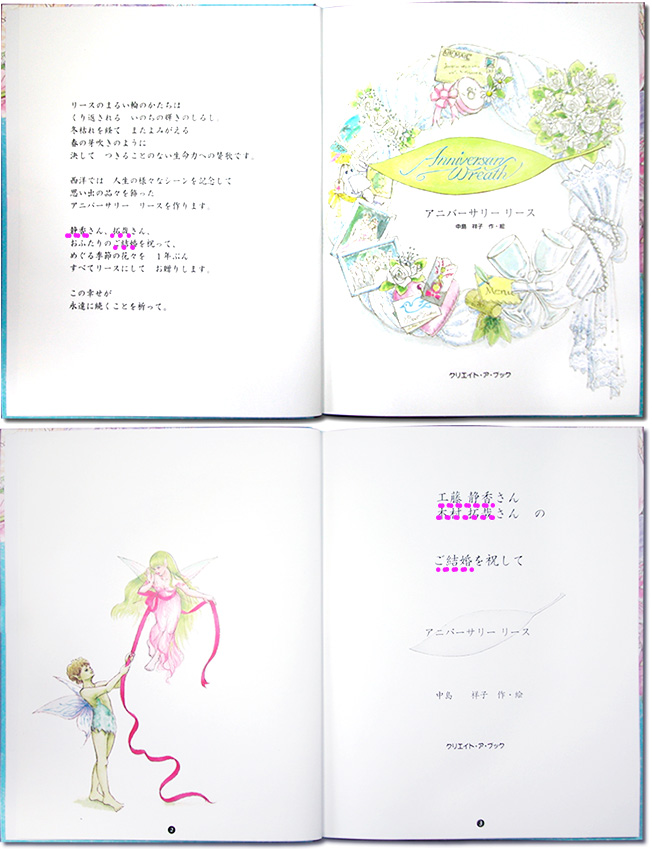 リースのまるい輪のかたちは
くり返される いのちの輝きのしるし。
冬枯れを経て またよみがえる
春の芽吹きのように
決して つきることのない生命力への賛歌です。
西洋では 人生の様々なシーンを記念して
思い出の品々を飾った
アニバーサリー リースを作ります。
静香さん、拓哉さん、
おふたりのご結婚を祝って、
めぐる季節の花々を 1年ぶん
すべてリースにして お贈りします。
この幸せが
永遠に続くことを祈って。
Anniversary
Wreath
アニバーサリー リース
中島 祥子 作・絵
クリエイト・ア・ブック
工藤 静香さん
木村 拓哉さん の
ご結婚を祝して
アニバーサリー リース
中島 祥子 作・絵
クリエイト・ア・ブック
2
3